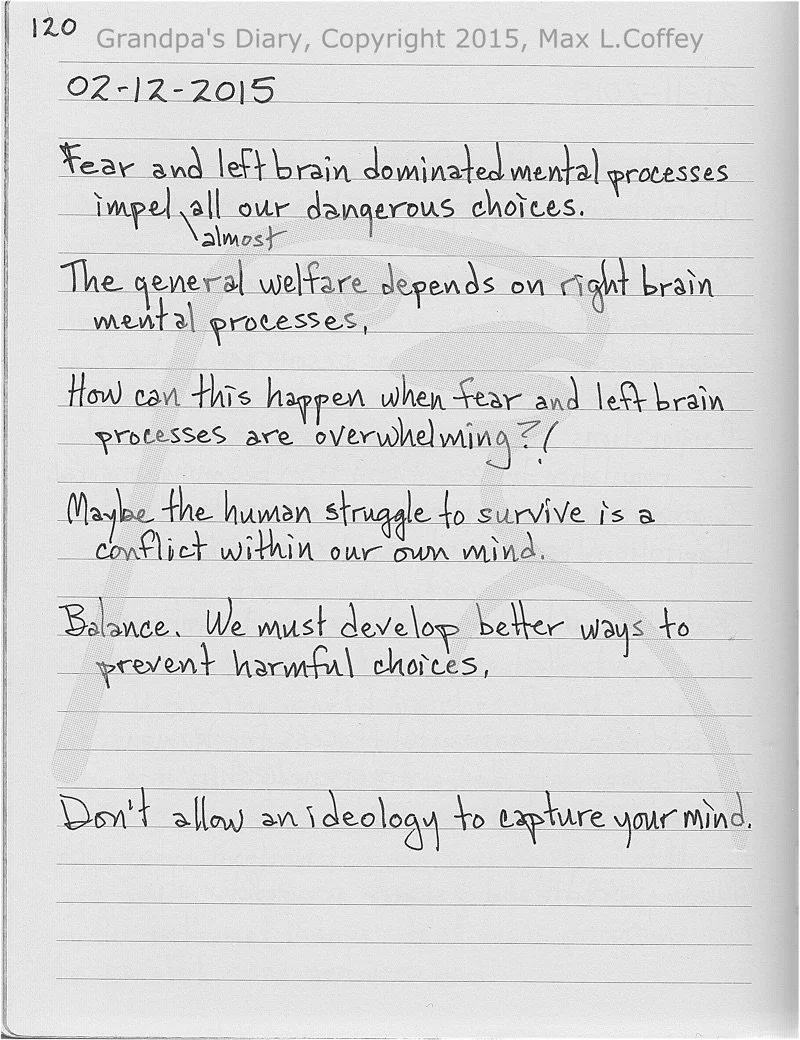 120
Grandpa's Diary, Copyright 2015, Max L.Coffey
02-12-2015
Fear and left brain dominated mental processes
impel \ all our dangerous choices.
almost
The general welfare depends on right brain
mental processes,
How can this happen when fear and left brain
processes are overwhelming?!
Maybe the human struggle to survive is a
conflict within our own mind.
Balance. We must develop better ways to
prevent harmful choices,
Don't allow an ideology to capture your mind.